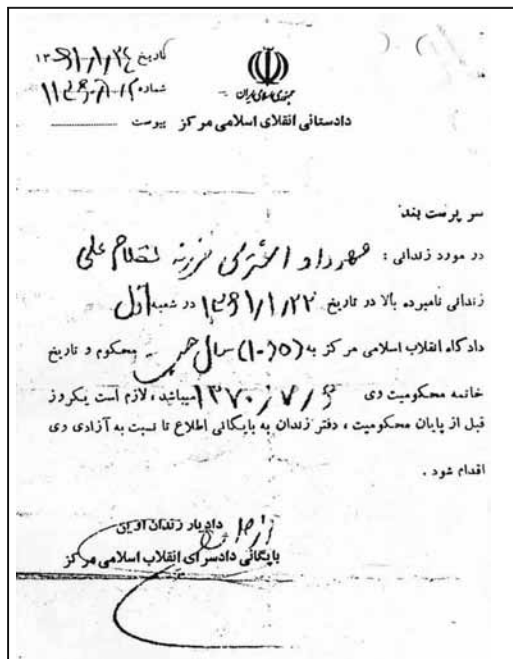 تاریخ ۱۳۶۱/۱/۲۴
شماره
جمهوری اسلامی ایران
دادستانی انقلاب اسلامی مرکز پیوست
سرپرست بند
در مورد زندانی: مهرداد اشتری فرزند غلام علی
زندانی نامبرده بالا در تاریخ ۱۳۶۱/۱/۲۲ در شعبه اول
دادگاه انقلاب اسلامی مرکز به (۱۰) سال حبس محکوم و تاریخ
خاتمه محکومیت وی ۱۳۷۰/۷/ میباشد، لازم است یکروز
قبل از پایان محکومیت، دفتر زندان به بایگانی اطلاع تا نسبت به آزادی وی
اقدام شود.
دادیار زندان اوین
بایگانی دادسرای انقلاب اسلامی مرکز